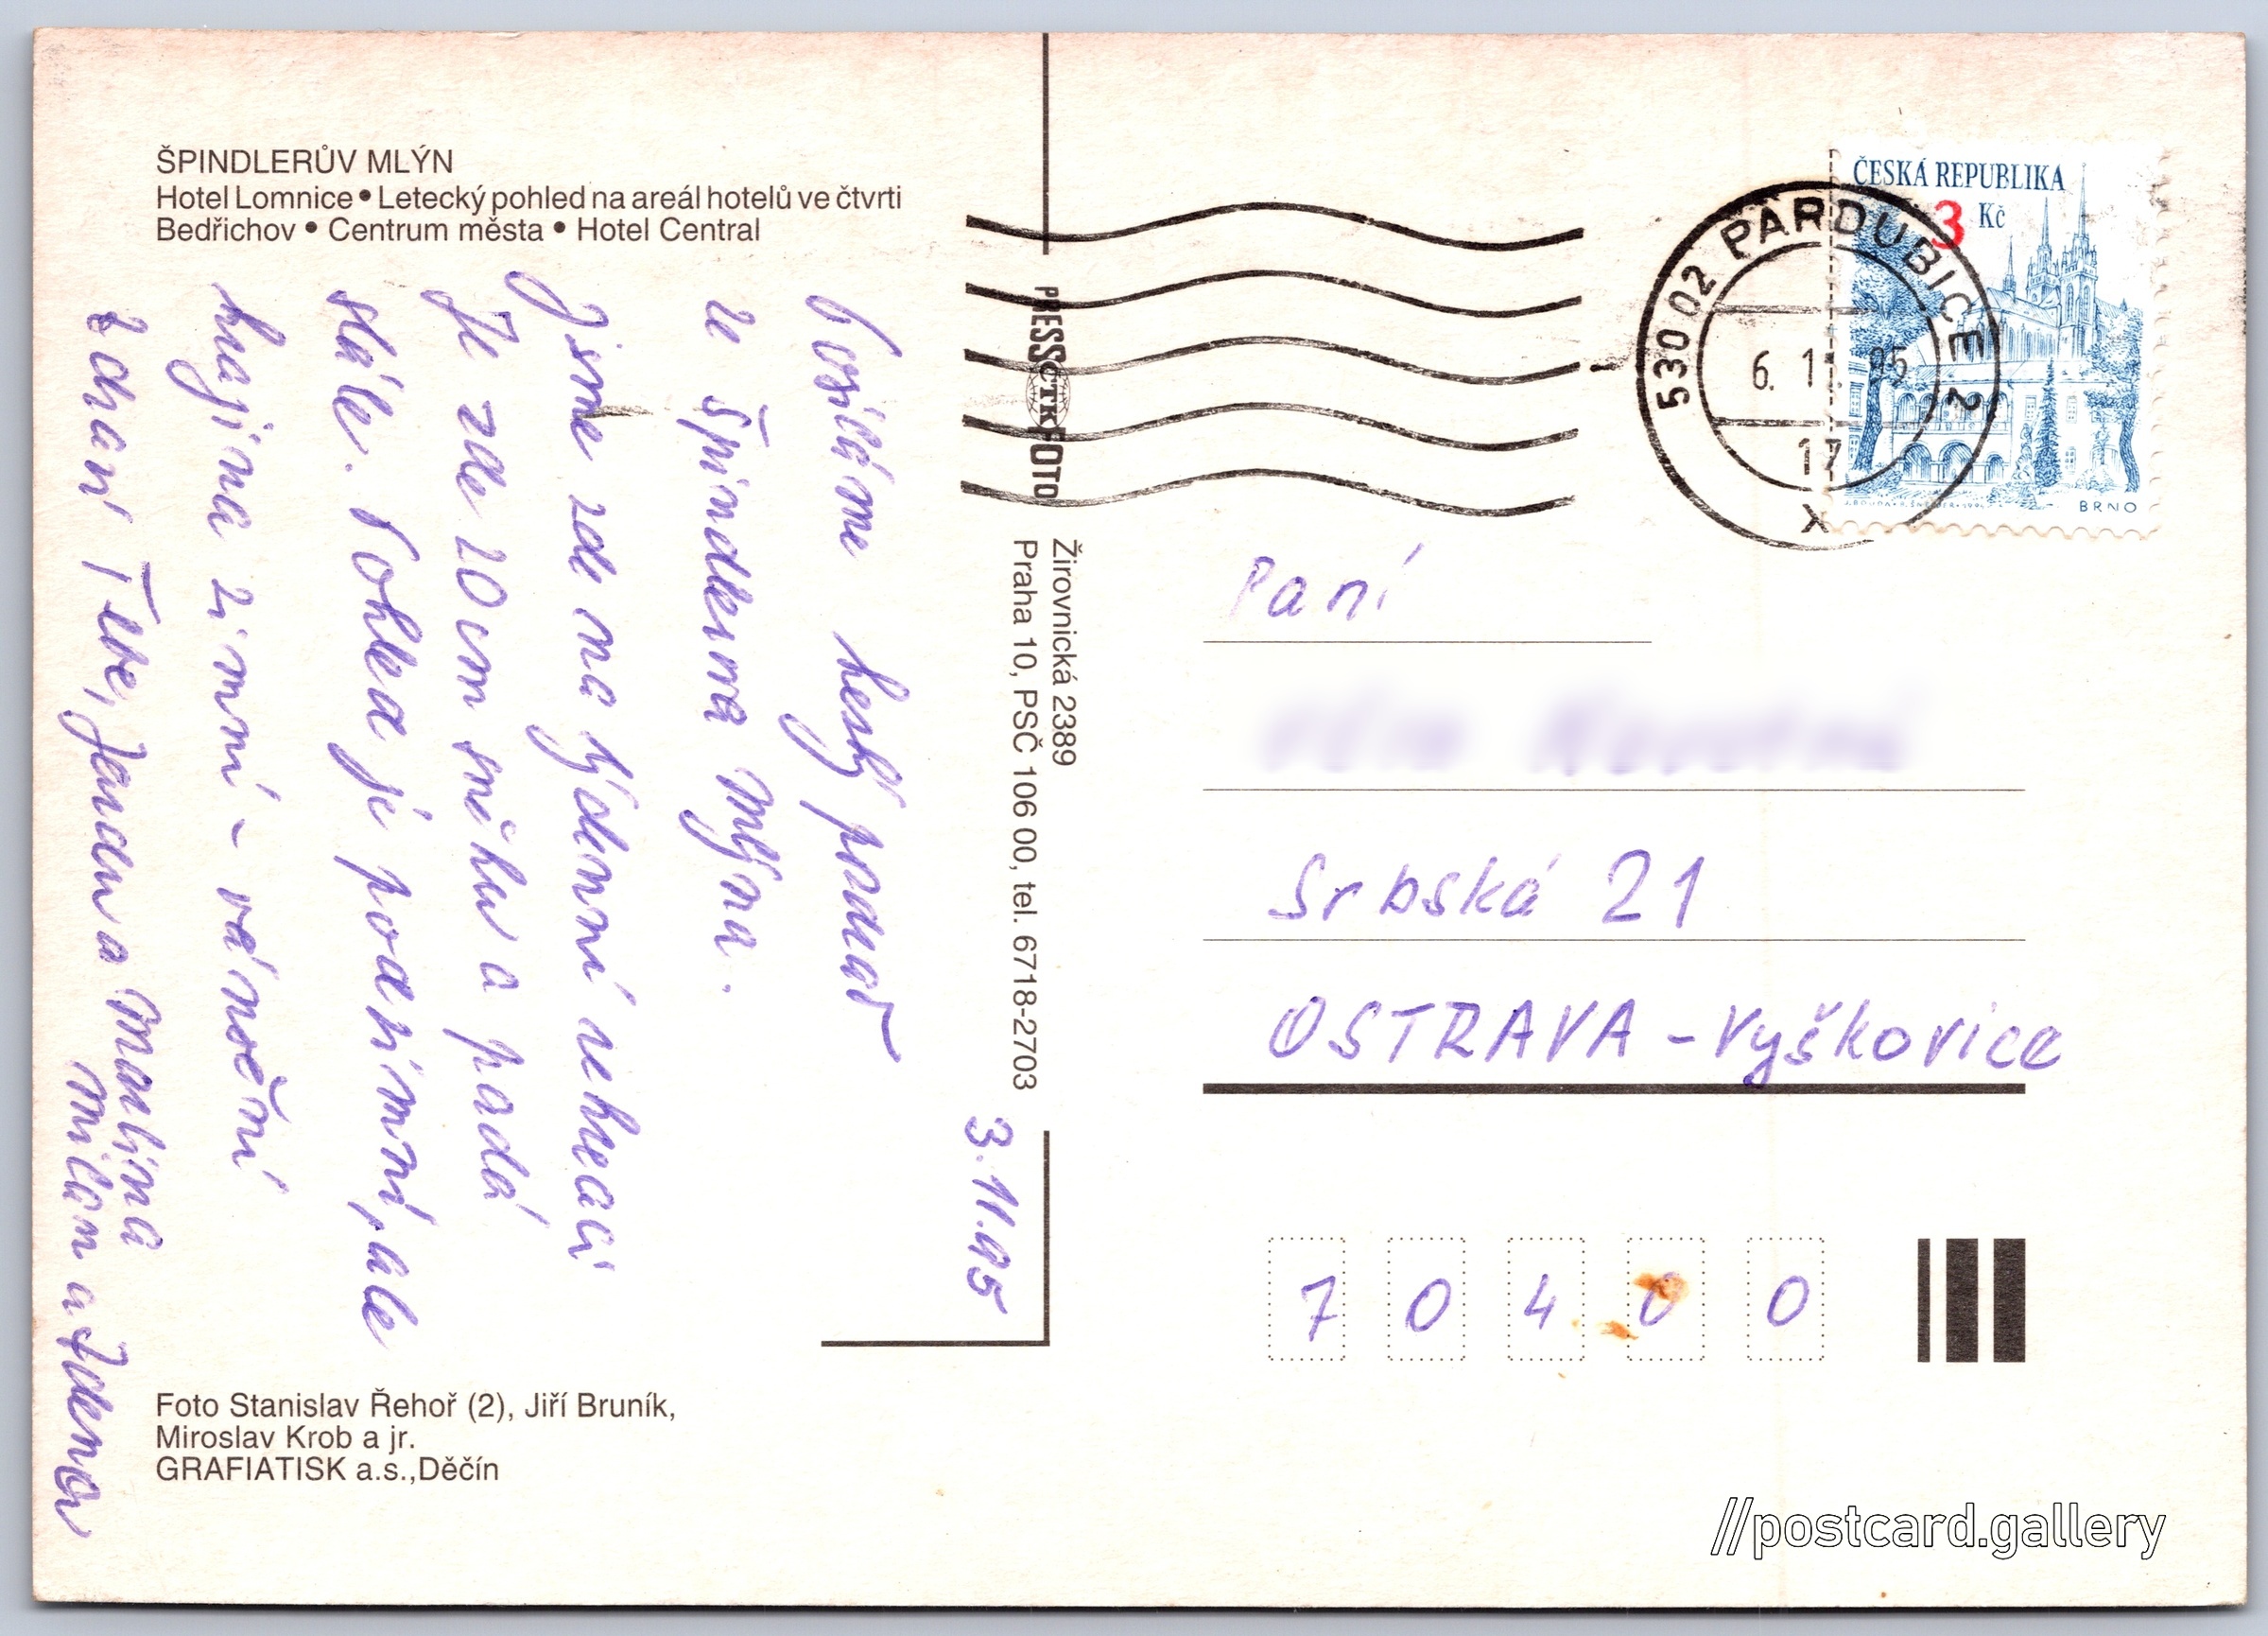 ŠPINDLERŮV MLÝN
Hotel Lomnice • Letecký pohled na areál hotelů ve čtvrti
Bedřichov • Centrum města • Hotel Central
3.11.95
Posíláme hezký pozdrav
ze Špindlerova Mlýna.
Jsme zde na týdenní rekreaci
Je zde 20 cm sněhu a padá
stále. Pohled je podzimní, ale
krajina zimní - vánoční
Zdraví Tebe, Jendu a Martina
Milan a Zdena
Foto Stanislav Řehoř (2), Jiří Bruník,
Miroslav Krob a jr.
GRAFIATISK a.s.,Děčín
PRESSČTKFOTO
Žirovnická 2389
Praha 10, PSČ 106 00, tel. 6718-2703
ČESKÁ REPUBLIKA
3 Kč
BRNO
530 02 PARDUBICE 2
6. 11. 95
17
X
Paní
Srbská 21
OSTRAVA - Vyškovice
704 00
//postcard.gallery